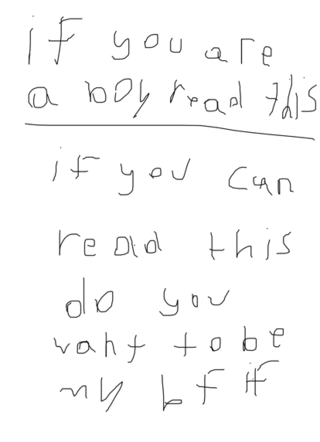 if you are
a boy read this
if you can
read this
do you
want to be
my bf if